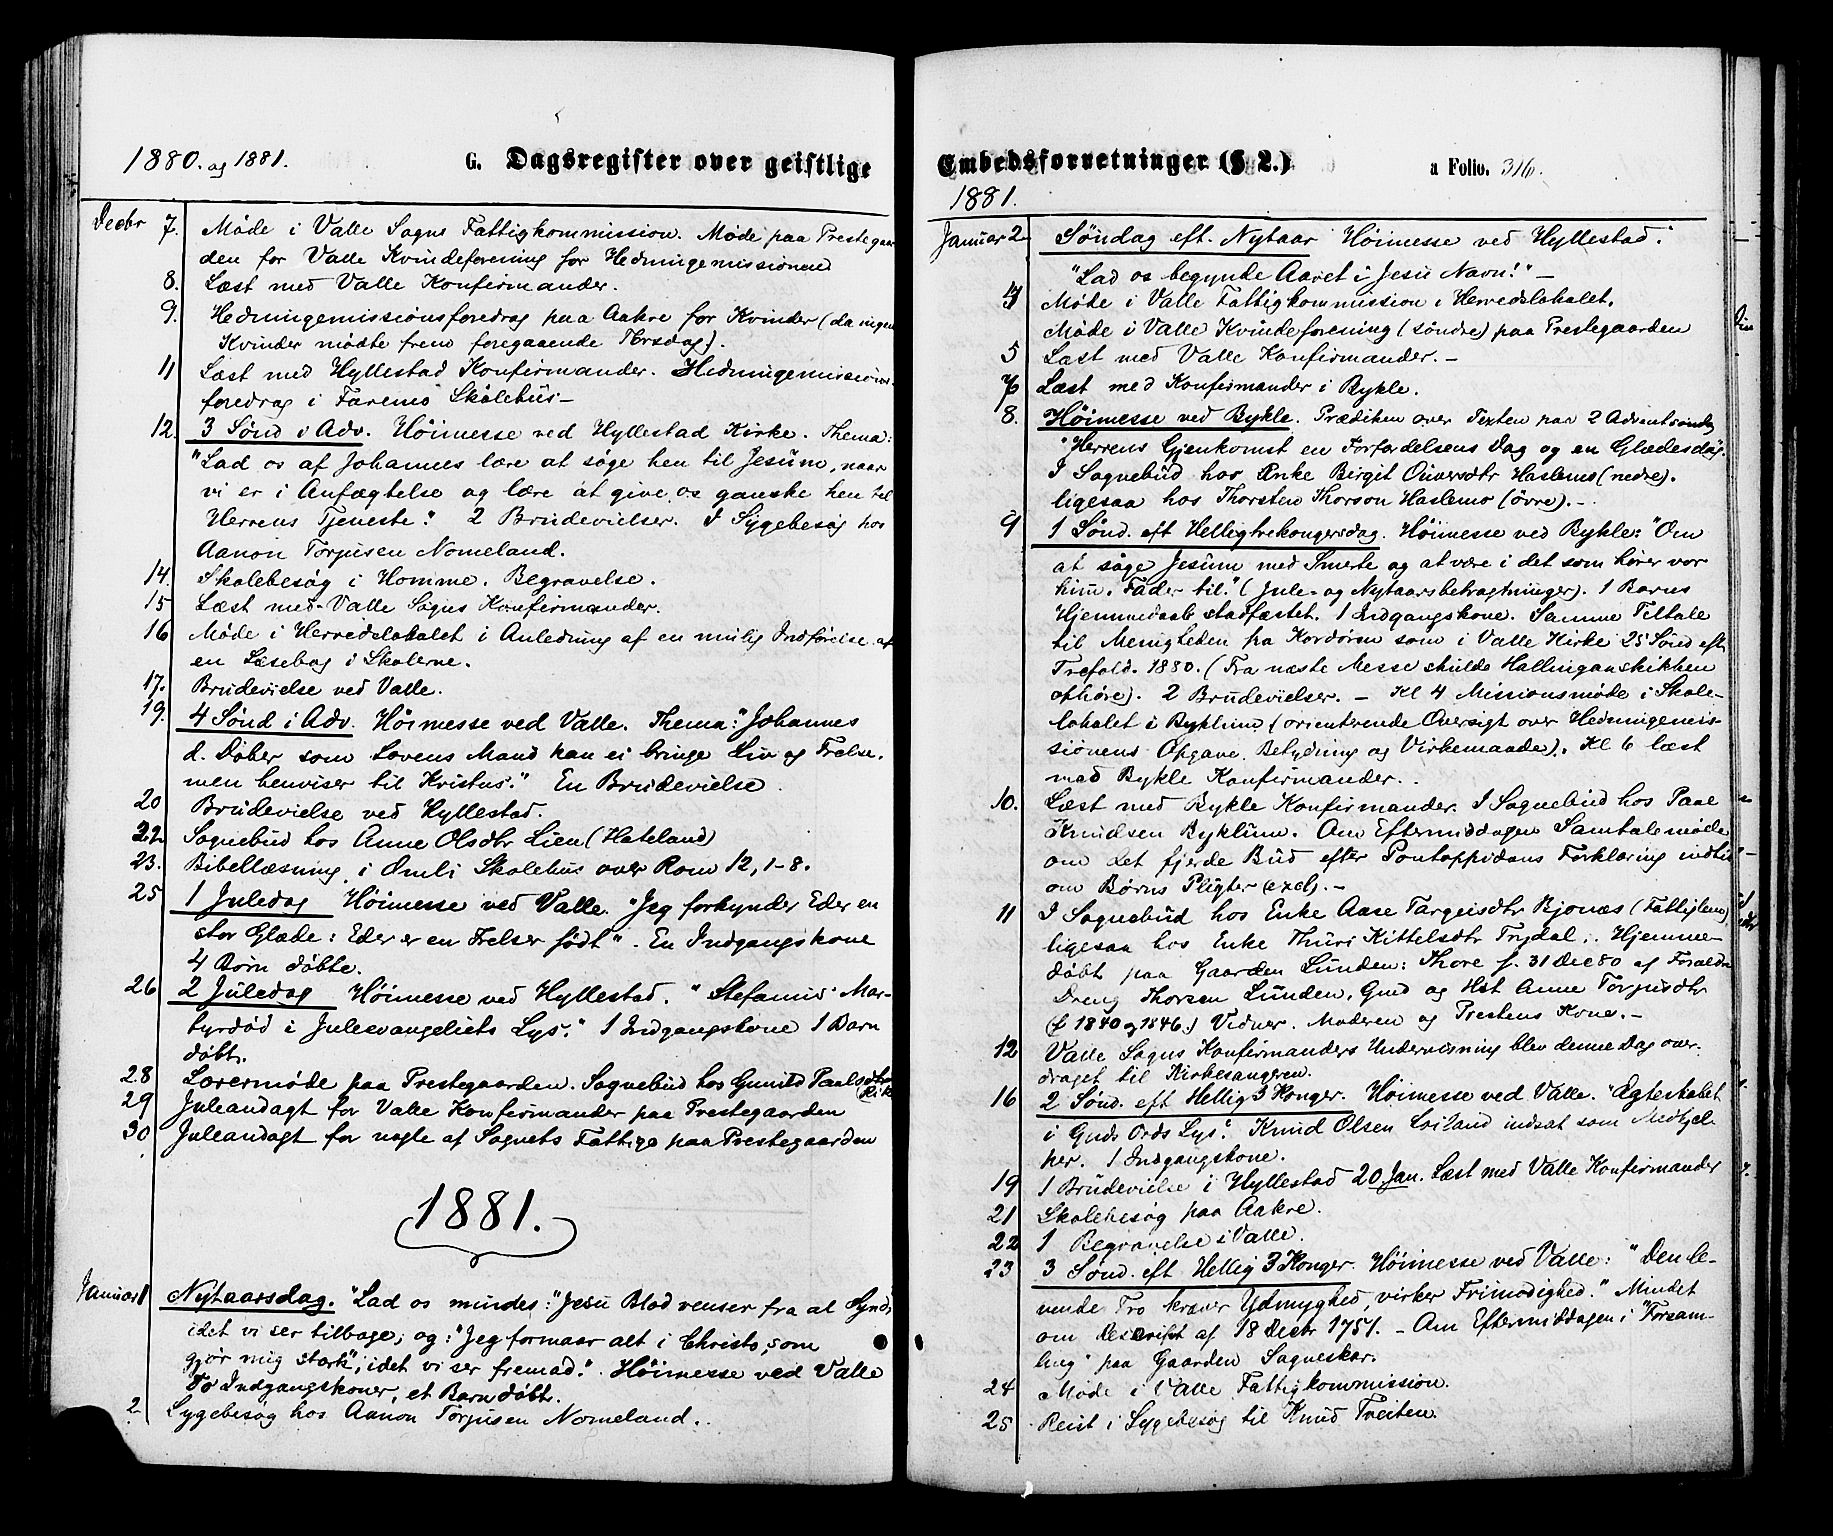 1880. og 1881. G. Dagsregister over geistlige
Decbr 7. Møde i Valle Sogns Fattigkommission. Møde paa Prestegaar
den for Valle Kvindeforening for Hedningemissionen
8. Læst med Valle Konfirmander.
9. Hedningemissionsforedrag paa Aakre for Kvinder (da ingen
Kvinder mødte frem foregaaende Torsdag).
11 Læst med Hyllestad Konfirmander. Hedningemissions-
foredrag i Faremo Skolehus-
12. 3 Sønd i Adv. Höimesse ved Hyllestad Kirke. Thema:
"Lad os af Johannes lære at søge hen til Jesum, naar
vi er i Anfægtelse og lære at give os ganske hen til
Herrens Tjeneste." 2 Brudevielser. I Sygebesøg hos
Aanon Torjusen Nomeland.
14. Skolebesøg i Homme. Begravelse.
15 Læst med Valle Sogns Konfirmander.
16 Møde i Herredslokalet i Anledning af en mulig Indførelse af
en Læsebog i Skolerne.
17. Brudevielse ved Valle.
19. 4 Sønd i Adv. Höimesse ved Valle. Thema: "Johannes
d. Døber som Lovens Mand kan ei bringe Liv og Frelse,
men henviser til Kristus." En Brudevielse.
20 Brudevielse ved Hyllestad.
22 Sognebud hos Anne Olsdtr Lien (Hateland)
23. Bibellæsning i Omli Skolehus over Rom 12, 1-8.
25 1 Juledag Höimesse ved Valle. "Jeg forkynder Eder en
stor Glæde: Eder er en Frelser født". En Indgangskone
4 Børn døbte.
26 2 Juledag Höimesse ved Hyllestad. "Stefanus' Mar-
tyrdød i Juleevangeliets Lys." 1 Indgangskone 1 Barn
døbt.
28 Lærermøde paa Prestegaarden. Sognebud hos Gunild Paalsdtr
(Rike
29 Juleandagt for Valle Konfirmander paa Prestegaarden
30 Juleandagt for nogle af Sognets Fattige paa Prestegaarden
1881.
Januar 1 Nytaarsdag. "Lad os mindes: "Jesu Blod renser fra al Synd,
idet vi ser tilbage; og: "Jeg formaar alt i Christo, som
gjör mig stærk", idet vi ser fremad." Höimesse ved Valle
To Indgangskoner, et Barn døbt.
2 Sygebesøg hos Aanon Torjusen Nomeland.
Embedsforretninger (§ 2.) a Folio. 316.
1881.
Januar 2 Söndag eft. Nytaar Höimesse ved Hyllestad.
"Lad os begynde Aaret i Jesu Navn!" -
4 Møde i Valle Fattigkommission i Herredslokalet.
Møde i Valle Kvindeforening (søndre) paa Prestegaarden
5 Læst med Valle Konfirmander. -
7 Læst med Konfirmander i Bykle.
8. Höimesse ved Bykle. Prædiken over Texten paa 2 Adventsøndag
"Herrens Gjenkomst en Forfærdelsens Dag og en Glædesdag.
I Sognebud hos Enke Birgit Oiversdtr Haslemo (nedre).
ligesaa hos Thorsten Thorson Haslemo (övre). -
9 1 Sønd. eft Helligtrekongersdag. Höimesse ved Bykle: "Om
at søge Jesum med Smerte og at være i det som hører vor
him. Fader til." (Jule- og Nytaarsbetragtninger). 1 Barns
Hjemmedaab stadfæstet. 1 Indgangskone. Samme Tiltale
til Menigheden fra Kordøren som i Valle Kirke 25 Sønd eft
Trefold. 1880. (Fra næste Messe skulde Hallinganskikken
ophøre). 2 Brudevielser. - Kl 4 Missionsmøde i Skole-
lokalet i Byklum (orienterende Oversigt over Hedningemis-
sionens Opgave, Betydning og Virkemaade). Kl 6 læst
med Bykle Konfirmander.
10. Læst med Bykle Konfirmander. I Sognebud hos Paal
Knudsen Byklum. Om Eftermiddagen Samtalemøde
om det fjerde Bud efter Pontoppidans Forklaring indtil
om Børns Pligter (excl). -
11 I Sognebud hos Enke Aase Targeisdtr Bjonæs (Fattiglem)
ligesaa hos Enke Thuri Kittelsdtr Trydal. Hjemme-
døbt paa Gaarden Lunden: Thore f. 31 Dec 80 af Forældre
Dreng Thorsen Lunden, Gmd og Hst Anne Torjusdtr
(f 1840 og 1846.) Vidner. Moderen og Prestens Kone. -
12 Valle Sogns Konfirmanders Undervisning blev denne Dag over-
draget til Kirkesangeren.
16 2 Sønd. eft Hellig 3 Konger. Höimesse ved Valle. "Ægteskabet
i Guds Ords Lys." Knud Olsen Loiland indsat som Medhjel-
per. 1 Indgangskone.
19 1 Brudevielse i Hyllestad 20 Jan. Læst med Valle Konfirmander
21 Skolebesøg paa Aakre.
22 1 Begravelse i Valle.
23 3 Sønd. eft Hellig 3 Konger. Höimesse ved Valle: "Den le-
vende Tro kræver Ydmyghed, virker Frimodighed." Mindet
om Reskript af 18 Decbr 1751. - Om Eftermiddagen i "Forsam-
ling" paa Gaarden Sagneskar.
24 Møde i Valle Fattigkommission.
25 Reist i Sygebesøg til Knud Treiten.